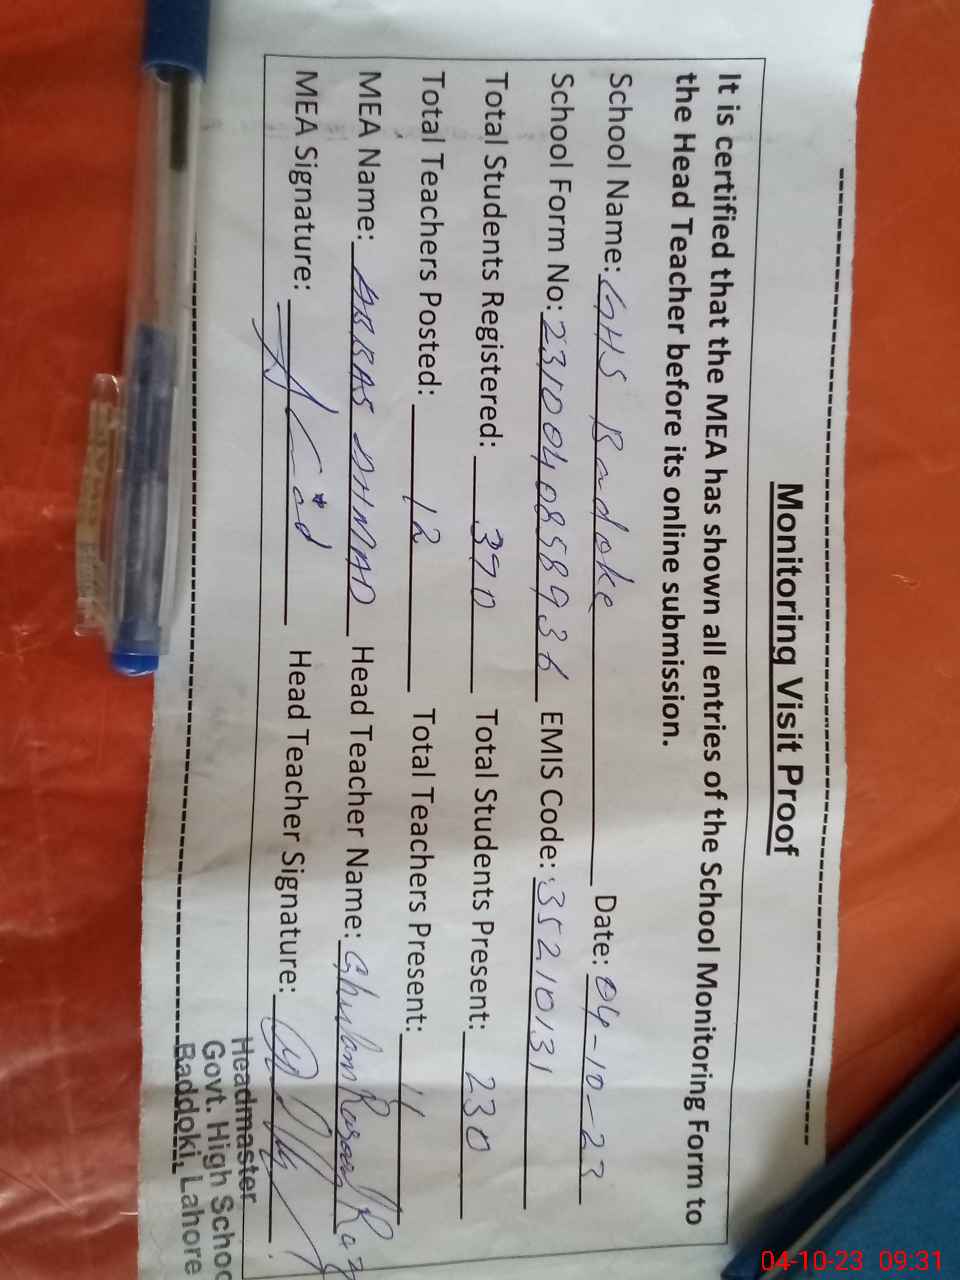 Monitoring Visit Proof
It is certified that the MEA has shown all entries of the School Monitoring Form to
the Head Teacher before its online submission.
School Name: GHS Badoke Date: 04-10-23
School Form No: 2310040858936 EMIS Code: 35210131
Total Students Registered: 370 Total Students Present: 230
Total Teachers Posted: 12 Total Teachers Present: 11
MEA Name: ABBAS AHMAD Head Teacher Name: Ghulam Rasool
MEA Signature: Head Teacher Signature:
Headmaster
Govt. High Schoo
Baddoki, Lahore
04-10-23 09:31